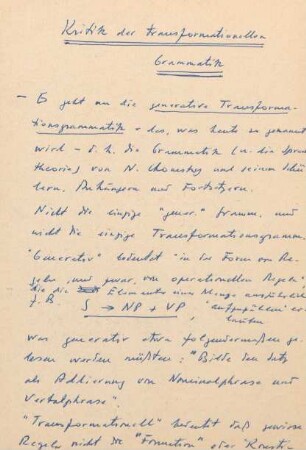 Kritik der transformationellen
Grammatik
– Es geht um die generative Transforma-
tionsgrammatik – das, was heute so genannt
wird – d. h. die Grammatik (u. die Sprach-
theorie) von N. Chomsky und seinen Schü-
lern, Anhängern und Fortsetzern.
Nicht die einzige "gener." Gramm. und
nicht die einzige Transformationsgramm.
"Generativ" bedeutet "in der Form von Re-
geln, und zwar, von operationellen Regeln",
die die Elemente einer Menge
z. B. S → NP + VP "aufzuführen" er-
lauben
was generativ etwa folgendermaßen ge-
lesen werden müßte: "Bilde den Satz
als Addierung von Nominalphrase und
Verbalphrase".
"Transformationell" bedeutet daß gewisse
Regeln nicht die "Formation" oder Konsti-